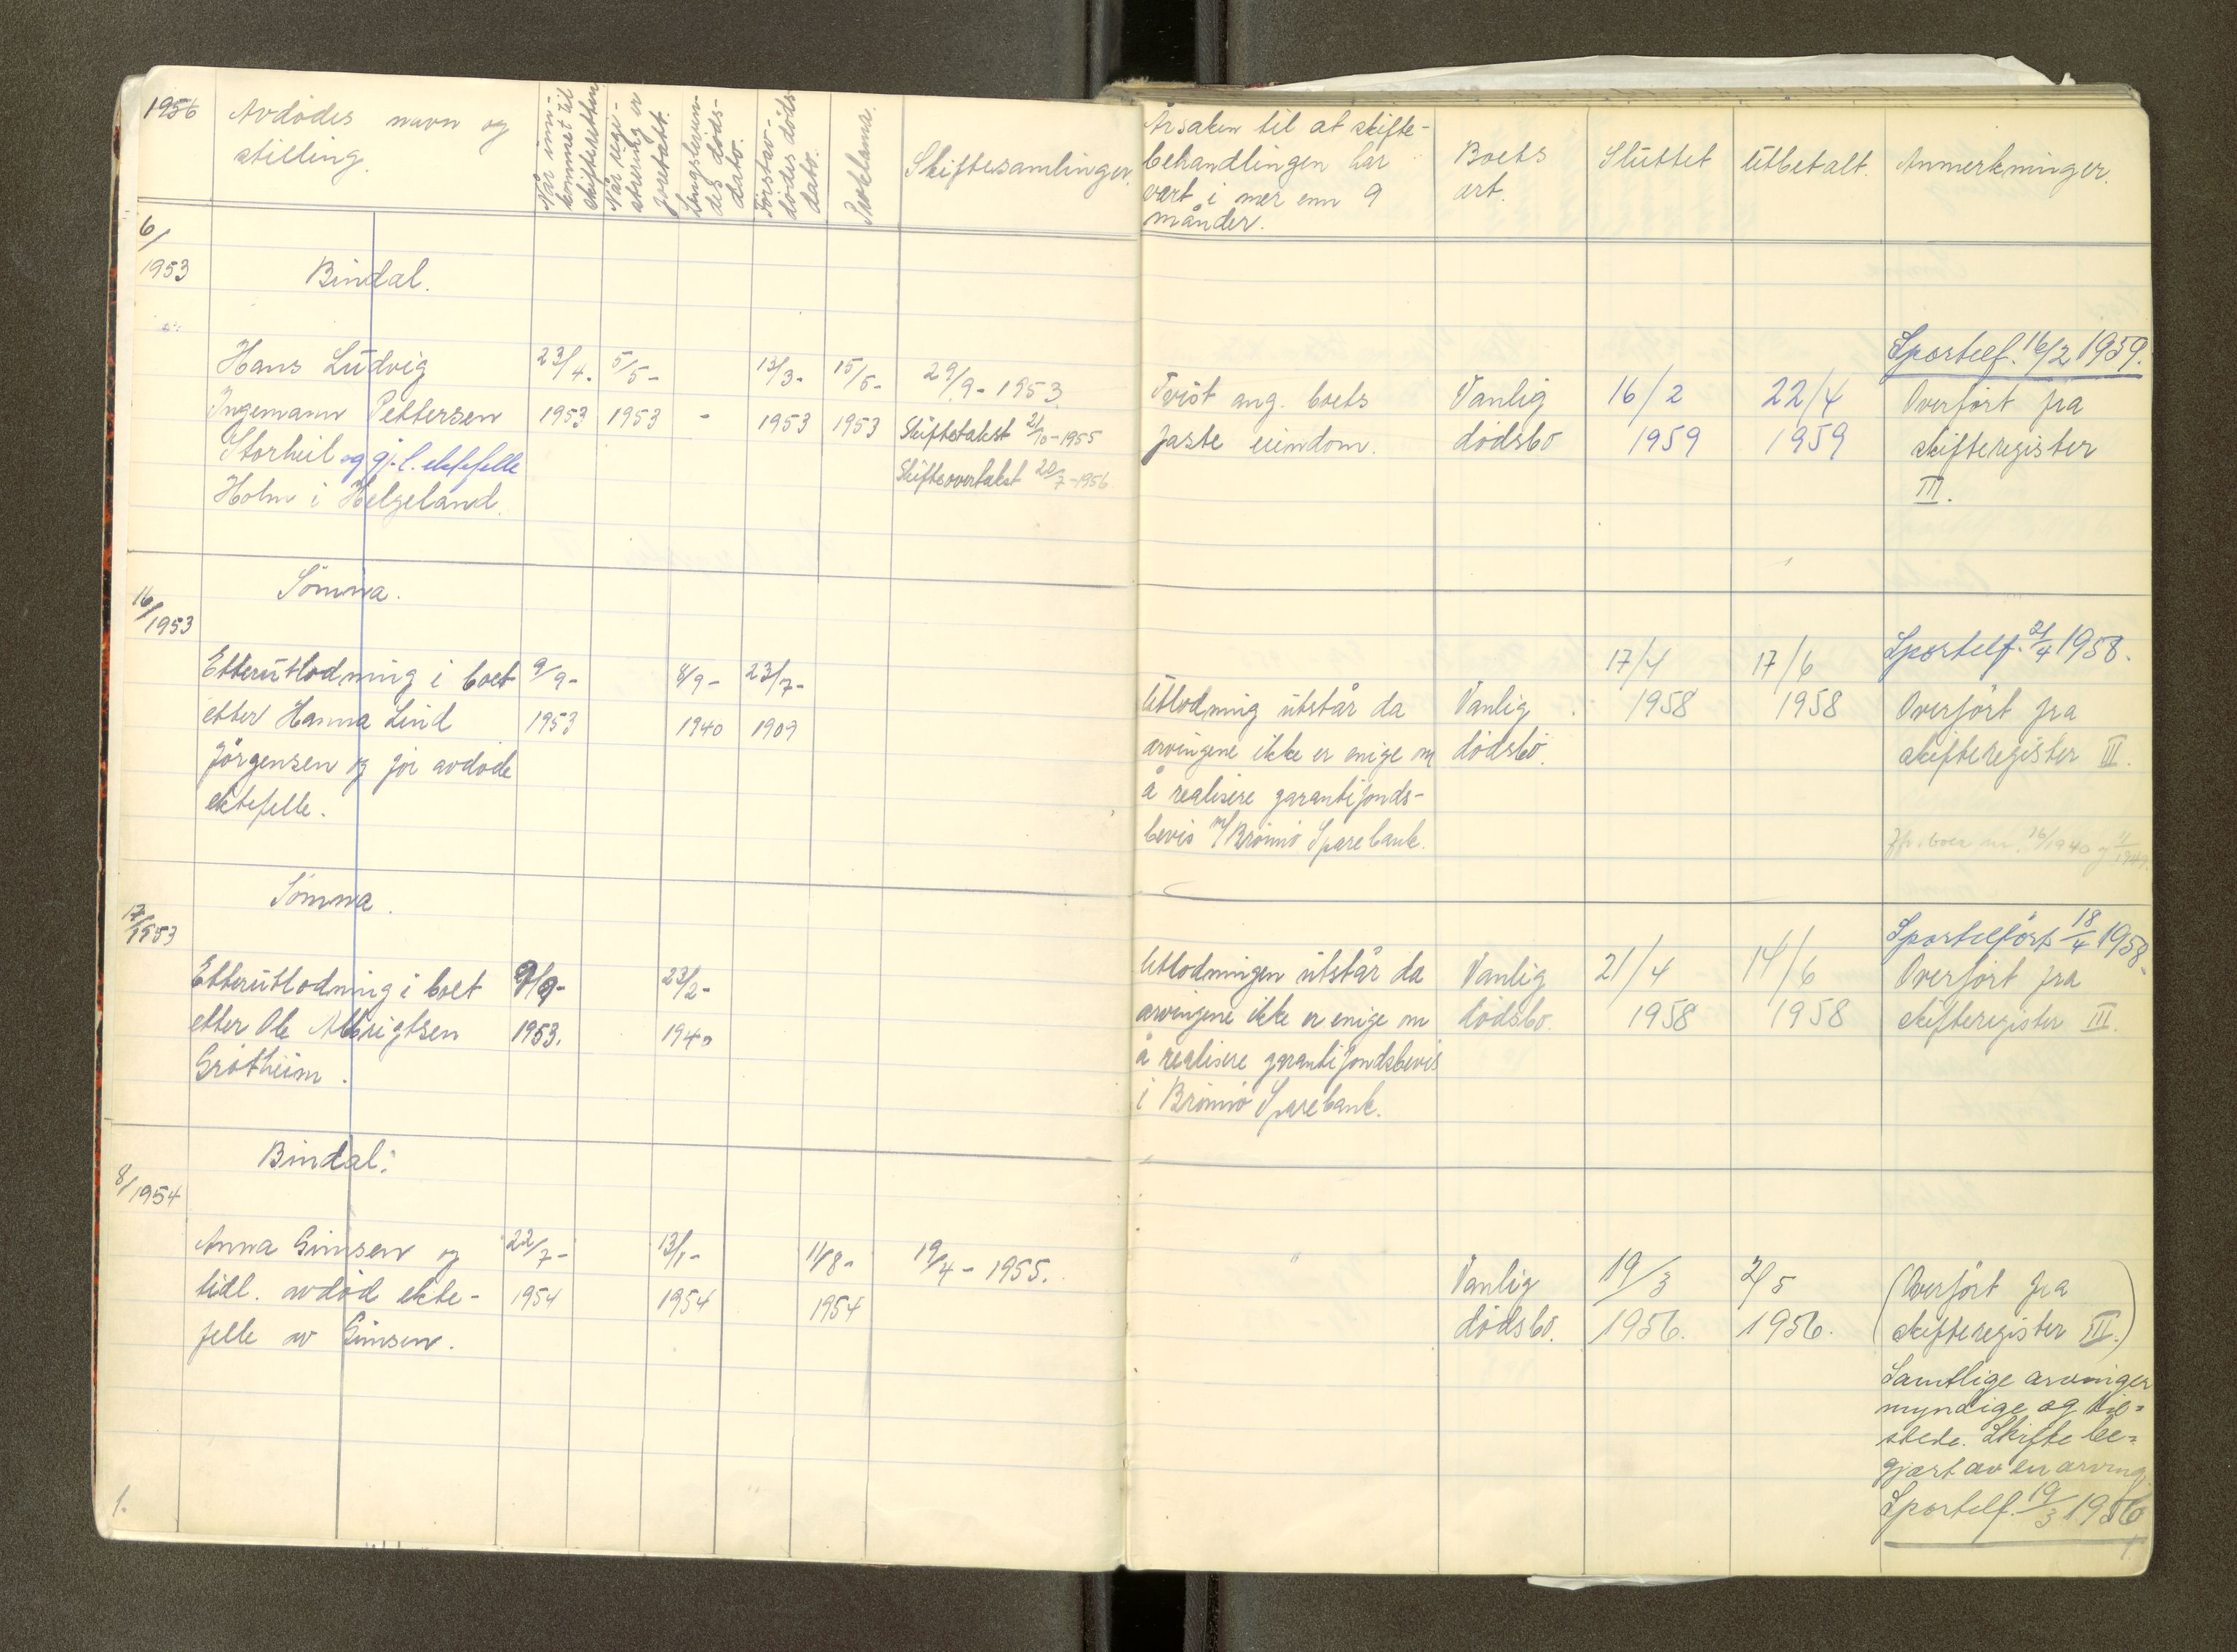 1956
Avdødes navn og
stilling.
Når inn-
kommet til
skifteretten
Når regi-
strering er
foretatt.
Lengstleven-
des døds-
dato.
Førstav-
dødes døds-
dato.
Proklama.
Skiftesamlinger.
Årsaken til at skifte-
behandlingen har
vart i mer enn 9
månder.
Boets
art.
Sluttet
Utbetalt.
Anmerkninger.
6/
1953
Bindal.
Hans Ludvig
Ingemann Pettersen
Storheil og gj.l. ektefelle
Holm i Helgeland.
23/4-
1953
5/5-
1953
-
13/3-
1953
15/5-
1953
29/9- 1953
Skiftetakst 21/10-1955
Skifteovertakst 20/7-1956
Tvist ang. boets
faste eiendom.
Vanlig
dødsbo
16/2
1959
22/4
1959
Sportelf. 16/2 1959.
Overført fra
skifteregister
III.
16/1953
Sømna.
Etterutlodning i boet
etter Hanna Lind
Jørgensen og før avdøde
ektefelle.
9/9-
1953
8/9-
1940
23/7-
1909
Utlodning utstår da
arvingene ikke er enige om
å realisere garantifonds-
bevis m/Brønnø Sparebank.
Vanlig
dødsbo.
17/4
1958
17/6
1958
Sportelf. 21/4 1958.
Overført fra
skifteregister III.
Jfr. boer nr. 16/1940 og
17/1953
Sømna.
Etterutlodning i boet
etter Ole Albrigtsen
Grøtheim.
9/9-
1953.
23/2-
1940
Utlodningen utstår da
arvingene ikke er enige om
å realisere garantifondsbevis
i Brønnø Sparebank.
Vanlig
dødsbo.
21/4
1958
14/6
1958
Sportelført 18/4 1958.
Overført fra
skifteregister III.
8/1954
Bindal.
Anna Gimsen og
tidl. avdød ekte-
felle av Gimsen.
22/7-
1954
13/1-
1954
11/8-
1954
19/4- 1955.
"
Vanlig
dødsbo.
19/3
1956.
2/5
1956.
(Overført fra
skifteregister III.)
Samtlige arvinger
myndige og til-
stede. Skifte be-
gjært av en arving
Sportelf. 19/3 1956
1.
1